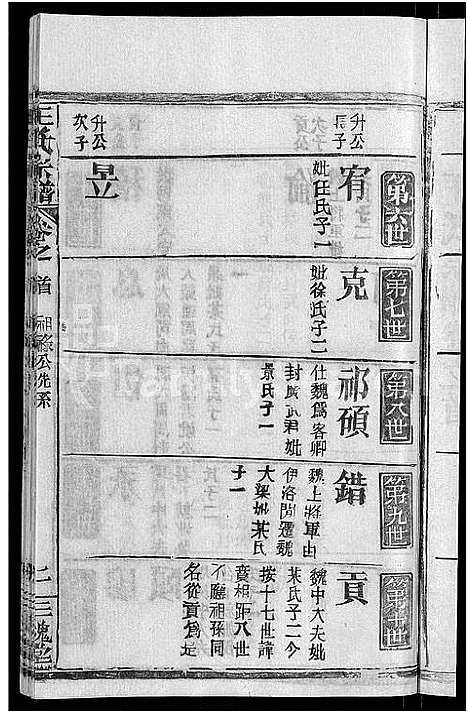 第六世
升公
長子
宥
妣任氏子一
升公
次子
昱
第七世
克
妣徐氏子二
第八世
祁碩
仕魏爲客卿
封廣武君妣
景氏子一
第九世
錯
魏上將軍由
伊洛間遷魏
大梁妣某氏
子一
第十世
賁
魏中大夫妣
某氏子二今
按十七世諱
賁相距八世
不應祖孫同
名從賁爲是
王氏宗譜
卷之首
祖公先系
二
三槐堂